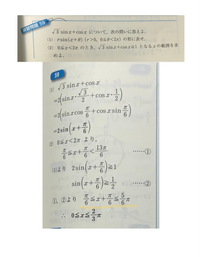 √3 sin x + cos x について，次の問いに答えよ。
(1) r sin(x+α) (r>0, 0≦α<2π) の形に表せ。
(2) 0≦x<2π のとき，√3 sin x + cos x ≧ 1 となる x の範囲を求めよ。
(1) √3 sin x + cos x
= 2(sin x · √3/2 + cos x · 1/2)
= 2(sin x cos π/6 + cos x sin π/6)
= 2 sin(x + π/6)
(2) 0≦x<2π より，
π/6 ≦ x + π/6 < 13π/6 ……①
(1)より 2 sin(x + π/6) ≧ 1
sin(x + π/6) ≧ 1/2 ……②
①，②より π/6 ≦ x + π/6 ≦ 5/6 π
∴ 0 ≦ x ≦ 2/3 π